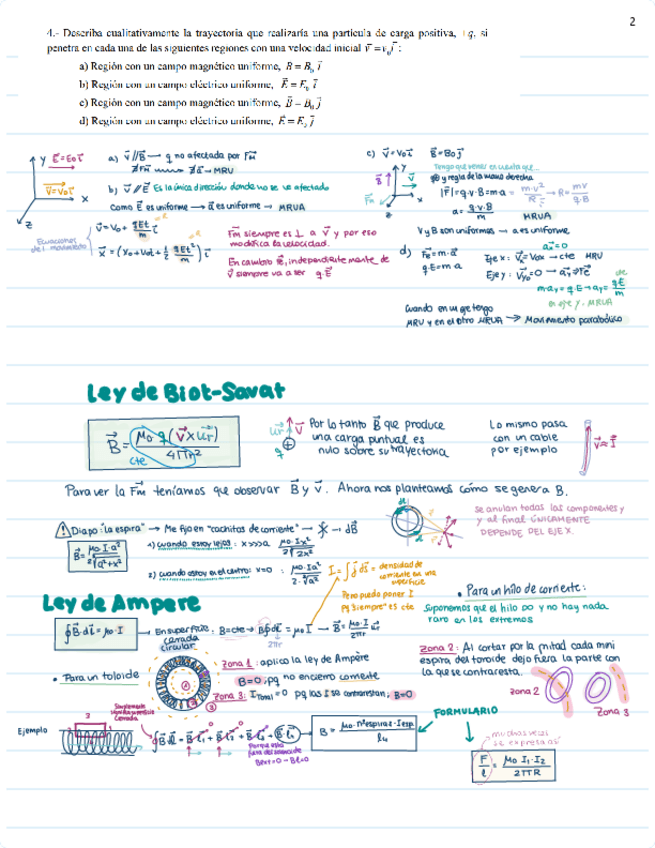 2
4.- Describa cualitativamente la trayectoria que realizaría una partícula de carga positiva, +q, si
penetra en cada una de las siguientes regiones con una velocidad inicial v⃗ = v₀ i⃗ :
a) Región con un campo magnético uniforme, B = B₀ i⃗
b) Región con un campo eléctrico uniforme, E⃗ = E₀ i⃗
c) Región con un campo magnético uniforme, B⃗ = B₀ j⃗
d) Región con un campo eléctrico uniforme, E⃗ = E₀ j⃗
Y E⃗=E₀i⃗
V⃗=V₀i⃗
X
Z
a) v⃗ // B⃗ → q no afectada por F⃗m
∄F⃗m → ∄a⃗ → MRU
b) v⃗ // E⃗ Es la única dirección donde no se ve afectado
Como E⃗ es uniforme → a⃗ es uniforme → MRUA
Ecuaciones
del movimiento
F⃗m siempre es ⊥ a v⃗ y por eso
modifica la velocidad.
En cambio F⃗e, independientemente de
v⃗ siempre va a ser q·E⃗
c) V⃗=V₀i⃗ B⃗=B₀j⃗
Tengo que tener en cuenta que
y regla de la mano derecha
|F⃗|=q·v·B=m·a = m·v²/R → R = mv/q·B
a = q·v·B/m MRUA
V y B son uniformes → a es uniforme
d) F⃗e=m·a⃗
q·E=m·a
Eje x: V⃗x=V₀x → cte MRU
Eje y: V⃗y₀=0 →
m·ay=q·E→ay= qE/m
en eje y. MRUA
Cuando en un eje tengo
MRU y en el otro MRUA → Movimiento parabólico
Ley de Biot-Savat
B⃗ = μ₀ q(v⃗×u⃗r)/4πr²
cte
Por lo tanto B⃗ que produce
una carga puntual es
nulo sobre su trayectoria
Lo mismo pasa
con un cable
por ejemplo
v⃗≈I⃗
Para ver la F⃗m teníamos que observar B⃗ y v⃗. Ahora nos planteamos cómo se genera B.
Diapo "la espira" → Me fijo en "cachitos de corriente" → dB⃗
1) Cuando estoy lejos: x>>>a
2) Cuando estoy en el centro: x=0 :
se anulan todas las componentes y
y al final ÚNICAMENTE
DEPENDE DEL EJE X.
I = ∫∫ j⃗ ds⃗ = densidad de
corriente en una
superficie
Pero puedo poner I
pq siempre es cte
Para un hilo de corriente:
Suponemos que el hilo ∞ y no hay nada
raro en los extremos
Ley de Ampere
∮B⃗·dl⃗=μ₀·I
En superficie: B=cte
cerrada
circular
Para un toloide
Zona 1: aplico la ley de Ampère
B=0; pq no encierro corriente
Zona 3: I total=0 pq las I se contrarestan; B=0
Zona 2: Al cortar por la mitad cada mini
espira del toroide dejo fuera la parte con
la que se contraresta.
zona 2
zona 3
Ejemplo
B = μ₀·nºespiras·Iesp/
FORMULARIO
muchas veces
se expresa así
F/l = μ₀ I₁·I₂/2πR